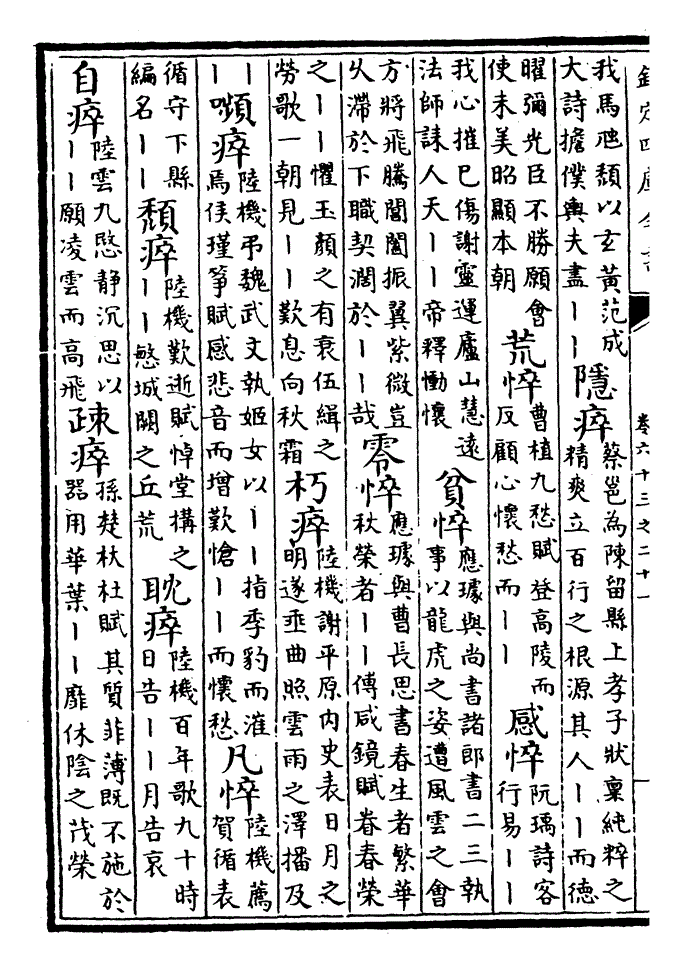 欽定四庫全書
卷六十三之二十一
我馬虺頽以玄黃范成
大詩擔僕輿夫盡丨丨
隱瘁
蔡邕為陳留縣上孝子狀稟純粹之
精爽立百行之根源其人丨丨而德
曜彌光臣不勝願會
使未美昭顯本朝
荒悴
曹植九愁賦登高陵而
反顧心懷愁而丨丨
感悴
阮瑀詩客
行易丨丨
我心摧已傷謝靈運廬山慧遠
法師誄人天丨丨帝釋慟懷
貧悴
應璩與尚書諸郎書二三執
事以龍虎之姿遭風雲之會
方將飛騰閶闔振翼紫微豈
乆滯於下職契濶於丨丨哉
零悴
應璩與曹長思書春生者繁華
秋榮者丨丨傅咸鏡賦眷春榮
之丨丨懼玉顔之有衰伍緝之
勞歌一朝見丨丨歎息向秋霜
朽瘁
陸機謝平原内史表日月之
明遂垂曲照雲雨之澤播及
丨
丨
嚬瘁
陸機弔魏武文執姬女以丨丨指季豹而漼
焉侯瑾箏賦感悲音而增歎愴丨丨而懷愁
凡悴
陸機薦
賀循表
循守下縣
編名丨丨
頽瘁
陸機歎逝賦悼堂構之
丨丨慜城闕之丘荒
耽瘁
陸機百年歌九十時
日告丨丨月告哀
自瘁
陸雲九愍静沉思以
丨丨願凌雲而高飛
疎瘁
孫楚杕杜賦其質菲薄既不施於
器用華葉丨丨靡休陰之茂榮